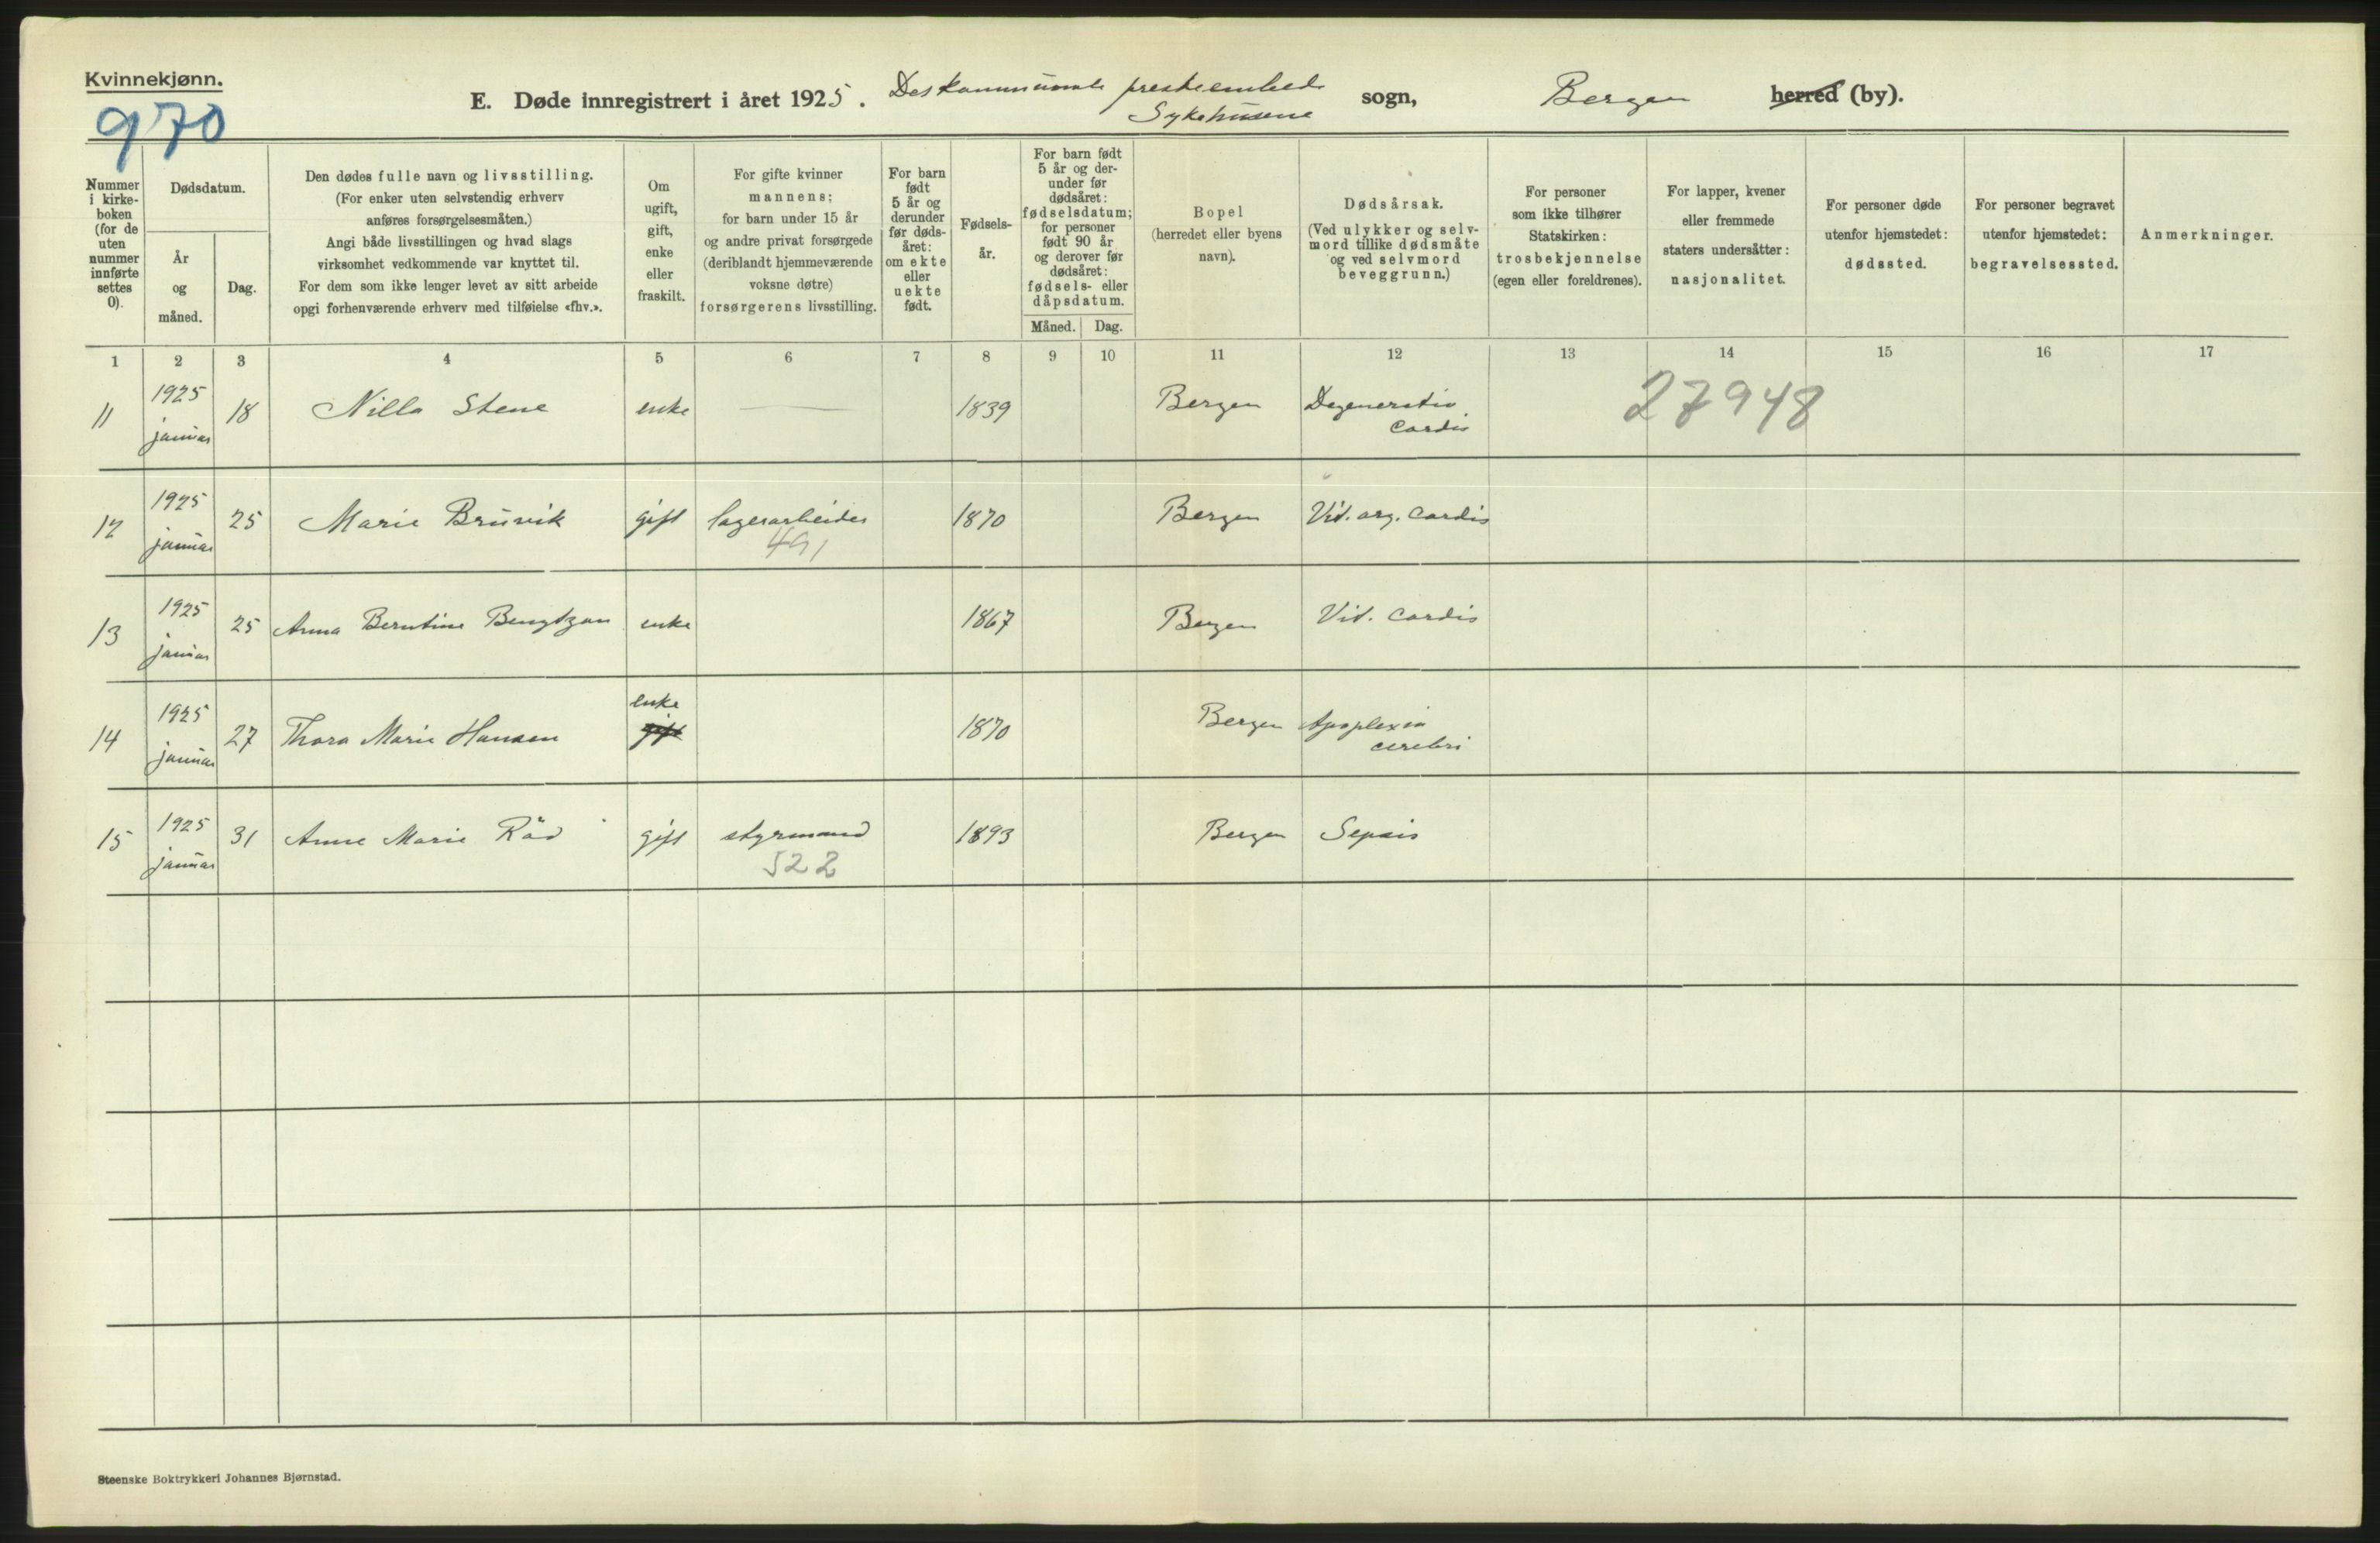 Kvinnekjønn.
970
E. Døde innregistrert i året 1925. Det kommunale presteembede sogn, Bergen herred (by).
Sykehusene
Nummer i kirke-boken (for de uten nummer innførte settes 0).
Dødsdatum.
År og måned.
Dag.
Den dødes fulle navn og livsstilling.
(For enker uten selvstendig erhverv
anføres forsørgelsesmåten.)
Angi både livsstillingen og hvad slags
virksomhet vedkommende var knyttet til.
For dem som ikke lenger levet av sitt arbeide
opgi forhenværende erhverv med tilføielse «fhv.».
Om
ugift,
gift,
enke
eller
fraskilt.
For gifte kvinner
mannens;
for barn under 15 år
og andre privat forsørgede
(deriblandt hjemmeværende
voksne døtre)
forsørgerens livsstilling.
For barn
født
5 år og
derunder
før døds-
året:
om ekte
eller
uekte
født.
Fødsels-
år.
For barn født
5 år og der-
under før
dødsåret:
fødselsdatum;
for personer
født 90 år
og derover før
dødsåret:
fødsels- eller
dåpsdatum.
Måned. Dag.
Bopel
(herredet eller byens
navn).
Dødsårsak.
(Ved ulykker og selv-
mord tillike dødsmåte
og ved selvmord
beveggrunn.)
For personer
som ikke tilhører
Statskirken:
trosbekjennelse
(egen eller foreldrenes).
For lapper, kvener
eller fremmede
staters undersåtter:
nasjonalitet.
For personer døde
utenfor hjemstedet:
dødssted.
For personer begravet
utenfor hjemstedet:
begravelsessted.
Anmerkninger.
1 2 3 4 5 6 7 8 9 10 11 12 13 14 15 16 17
11 1925 januar 18 Nilla Stene enke 1839 Bergen Degeneratio Cordis 27948
12 1925 januar 25 Marie Bruvik gift lagerarbeider 1870 Bergen Vit. org. Cordis
491
13 1925 januar 25 Anna Berntine Bengtzon enke 1867 Bergen Vit. Cordis
14 1925 januar 27 Thora Marie Hansen enke gift 1870 Bergen Apoplexia cerebri
15 1925 januar 31 Anne Marie Råd gift styrmand 1893 Bergen Sepsis
522
Steenske Boktrykkeri Johannes Bjørnstad.